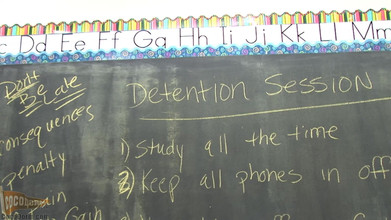 c Dd Ee Ff Gg Hh Ii Jj Kk Ll Mm
Don't
Be Late
consequences
penalty
Detention Session
1) Study all the time
2) Keep all phones in off